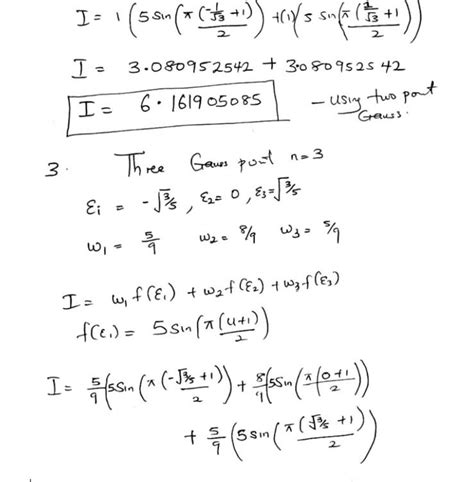 I = 1 (5 sin(π (-1/√3 +1)/2)) + (1)(5 sin(π (1/√3 +1)/2))
I = 3.080952542 + 3.080952542
I = 6.161905085 – using two point Gauss.
3. Three Gauss point n=3
ε₁ = -√3/5 , ε₂= 0 , ε₃=√3/5
w₁ = 5/9 w₂= 8/9 w₃= 5/9
I = w₁f(ε₁) + w₂f(ε₂) + w₃f(ε₃)
f(ε,) = 5 sin(π(u+1)/2)
I = 5/9 (5 sin(π (-√3/5 +1)/2)) + 8/9 (5 sin(π (0+1)/2))
+ 5/9 (5 sin(π (√3/5 +1)/2))